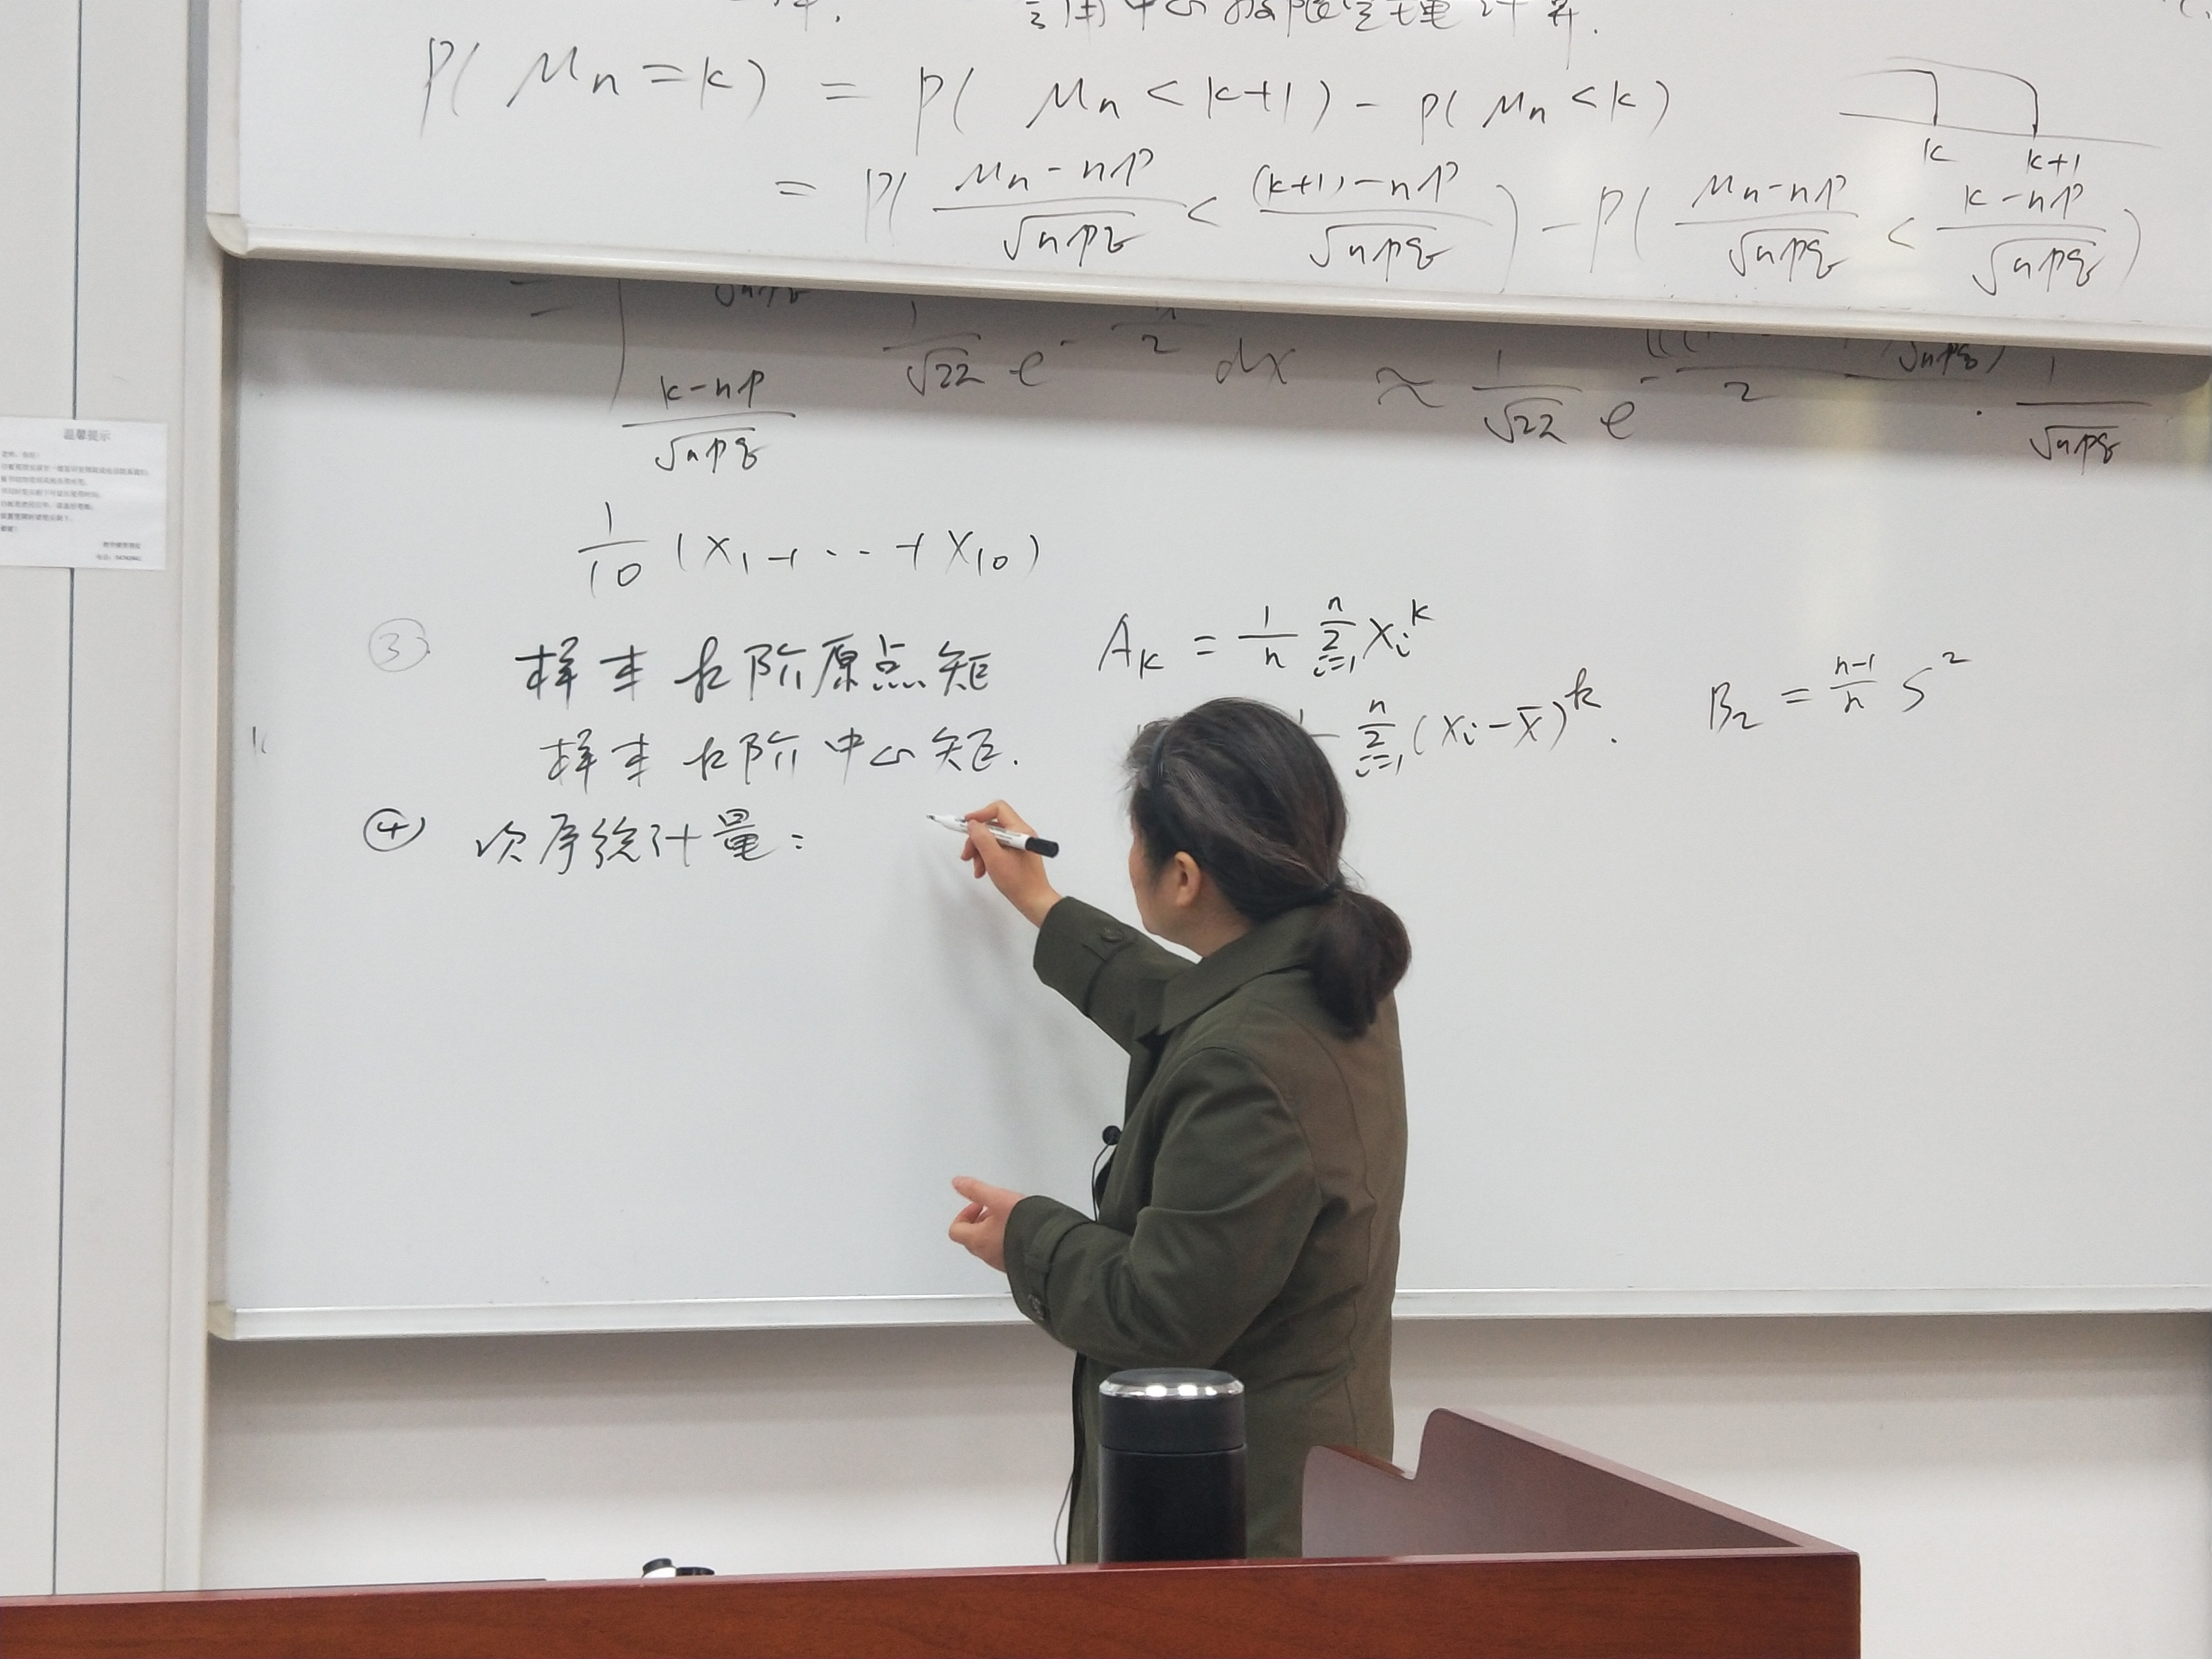 用中心极限定理计算.
P( μn = k ) = P( μn < k+1 ) - P( μn < k )
k k+1
= P( (μn - np)/√npq < ((k+1) - np)/√npq ) - P( (μn - np)/√npq < (k - np)/√npq )
= ∫ (k-np)/√npq 1/√2π e^- /2 dx ≈ 1/√2π e^- /2 · 1/√npq
1/10 (X1 + ··· + X10)
③ 样本k阶原点矩 Ak = 1/n Σ(i=1→n) Xi^k
样本k阶中心矩. Σ(i=1→n) (Xi - X̄)^k. B2 = (n-1)/n S²
④ 次序统计量:
温馨提示